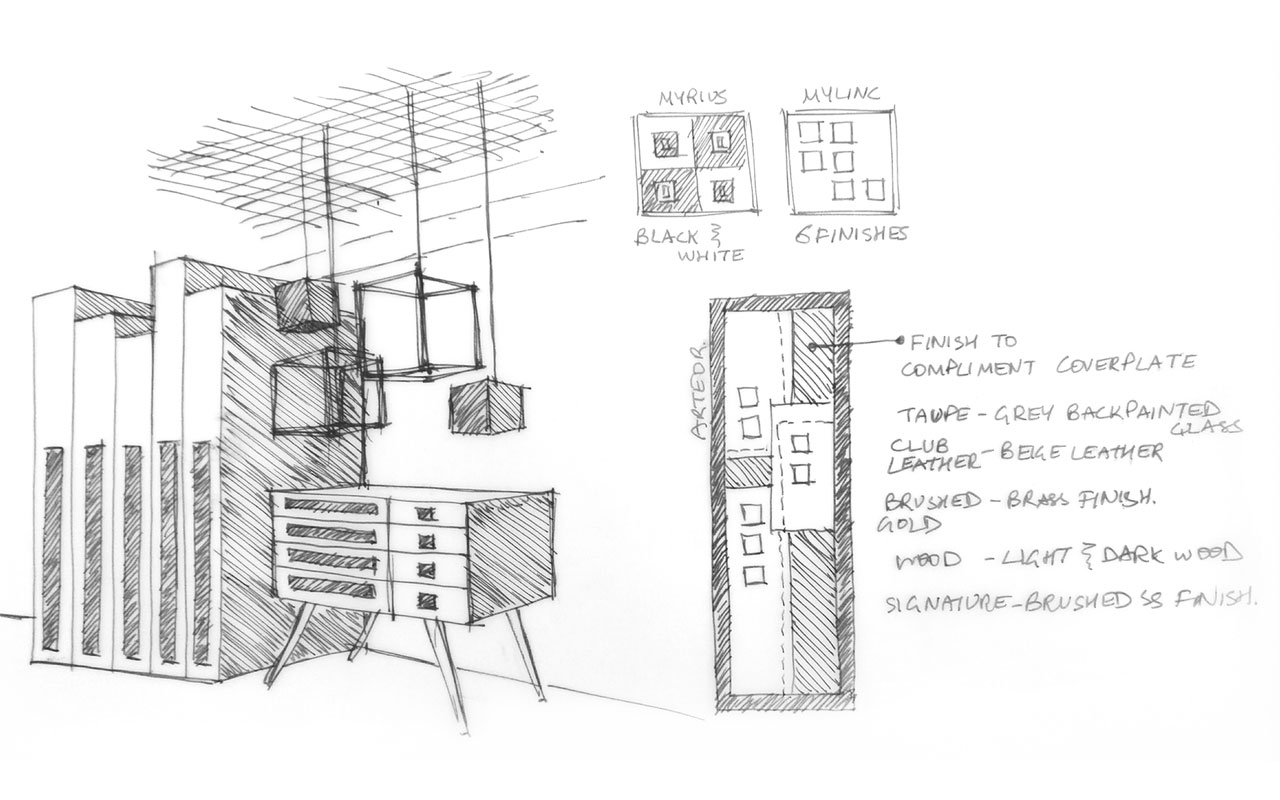 MYRIUS
MYLINC
BLACK &
WHITE
6 FINISHES
ARTEOR.
FINISH TO
COMPLIMENT COVERPLATE
TAUPE - GREY BACKPAINTED
GLASS
CLUB
LEATHER - BEIGE LEATHER
BRUSHED - BRASS FINISH.
GOLD
WOOD - LIGHT & DARK WOOD
SIGNATURE - BRUSHED SS FINISH.